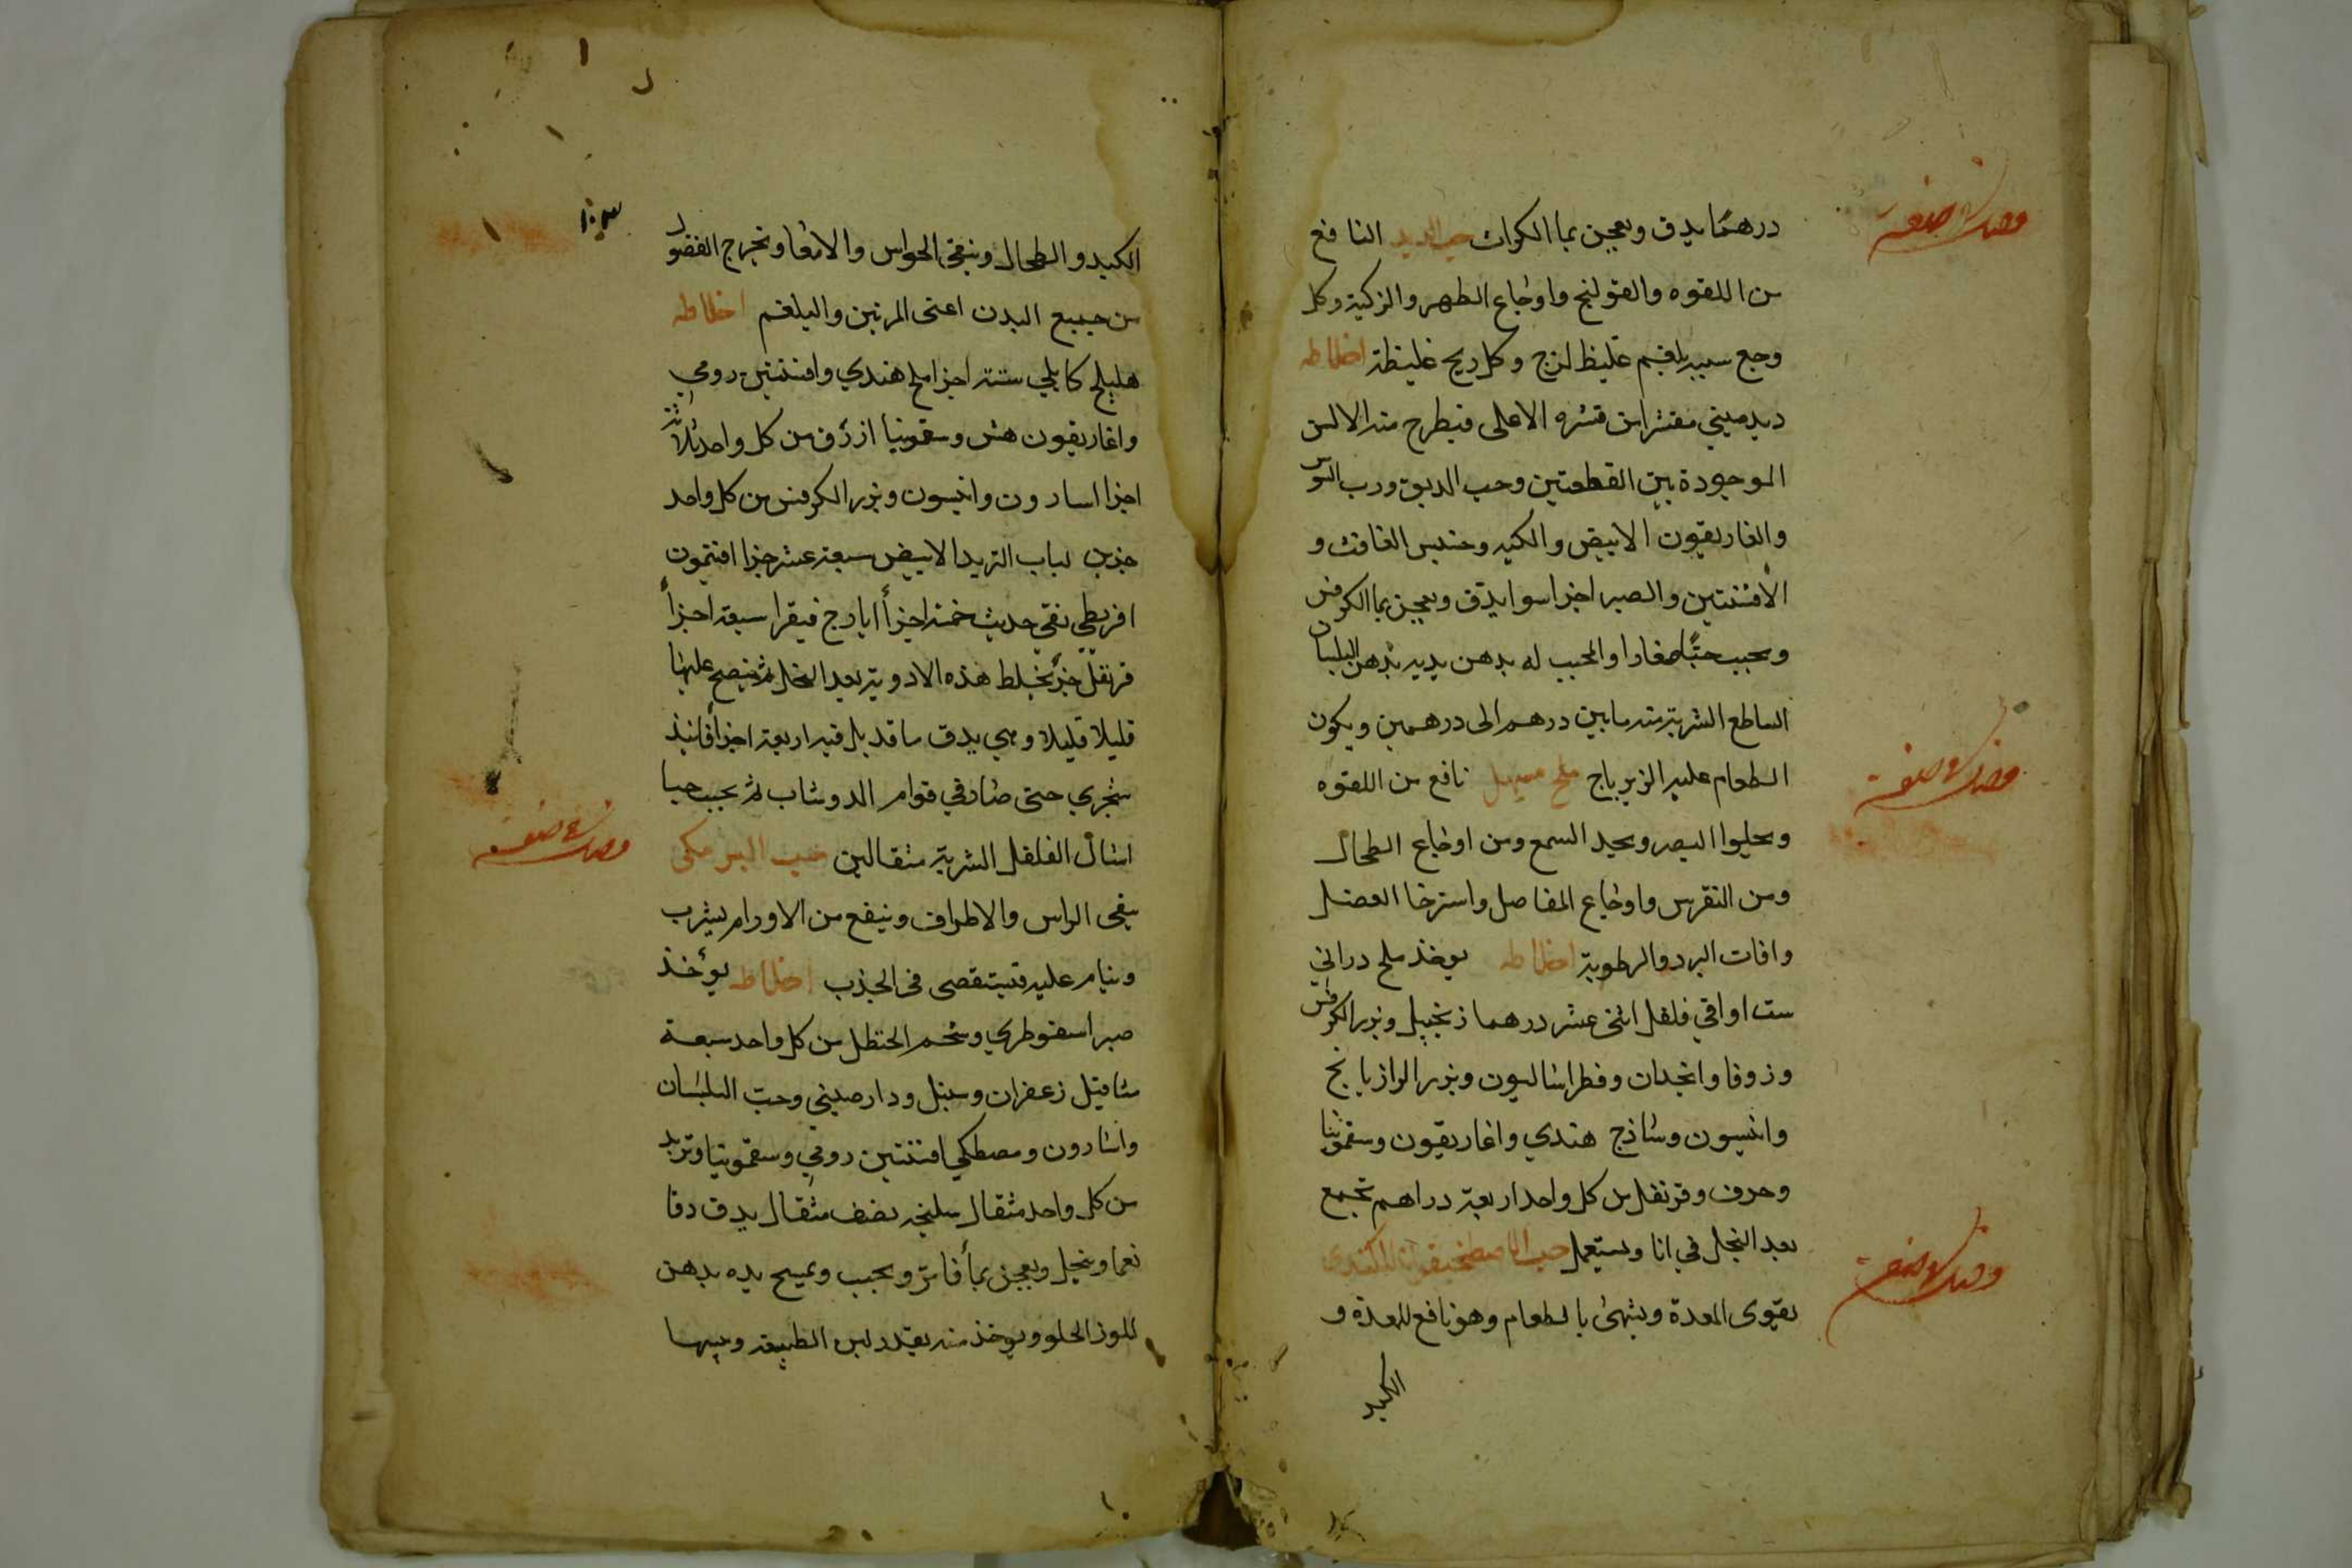 درهما يدق ويعجن بما الكراث حب الديد النافع
من اللقوه والقولنج واوجاع الظهر والركبة وكل
وجع سببه بلغم غليظ لزج وكل ريح غليظة اخلاطه
ديد صيني مقشر من قشره الاعلى فيطرح منه الالسن
الموجودة بين القطعتين وحب الديق ورب السوس
والغاريقون الابيض والكيه وحشيش الغافث و
الافسنتين والصبر اجزا سوا يدق ويعجن بما الكرفس
ويحبب حبًا صغارا والمحبب له يدهن يديه بدهن البلسان
الساطع الشربة منه ما بين درهم الى درهمين ويكون
الطعام عليه الزيرباج ملح مسهل نافع من اللقوه
ويحلوا البصر ويحيد السمع ومن اوجاع الطحال
ومن النقرس واوجاع المفاصل واسترخا العضل
وافات البرد والرطوبة اخلاطه يوخذ ملح دراني
ست اواقي فلفل اثنى عشر درهما زنجبيل وبزر الكرفس
وزوفا وانجدان وفطراساليون وبزر الرازيانج
وانيسون وساذج هندي واغاريقون وسقمونيا
وحرف وقرنفل من كل واحد اربعة دراهم تجمع
بعد النخل في انا ويستعمل حب الاصطمخيقون للكندي
يقوى المعدة ويشهى بالطعام وهو نافع للمعدة و
الكبد
الكبد والطحال وينقى الحواس والامعا وتخرج الفضول
من جميع البدن اعنى المرتين والبلغم اخلاطه
هليلج كابلي ستة اجزا ملح هندي وافسنتين رومي
واغاريقون هش وسقمونيا ازرق من كل واحد ثلاثة
اجزا اسارون وانيسون وبزر الكرفس من كل واحد
جزين لباب التربد الابيض سبعة عشر جزا افتيمون
افريطي نقي حديث خمسة اجزأ ايارج فيقرا سبعة اجزأ
قرنفل جزء تخلط هذه الادوية بعد النخل ثم ينضح عليها
قليلا قليلا وهي يدق ما قد بل فيه اربعة اجزأ فانيذ
شجري حتى صار في قوام الدوشاب ثم يحبب حبا
امثال الفلفل الشربة مثقالين حب البرمكى
ينقى الراس والاطراف وينفع من الاورام يشرب
وينام عليه فيستقصى فى الجذب اخلاطه يوأخذ
صبر اسقوطري وشحم الحنظل من كل واحد سبعة
مثاقيل زعفران وسنبل ودارصيني وحبّ البلسان
واسارون ومصطكي افسنتين رومي وسقمونيا وتربد
من كل واحد مثقال سليخه نصف مثقال يدق دقا
نعما وينخل ويعجن بمأ فاتر ويحبب ويمسح يده بدهن
اللوز الحلو ويوخذ منه بقدر لين الطبيعة ويبسها